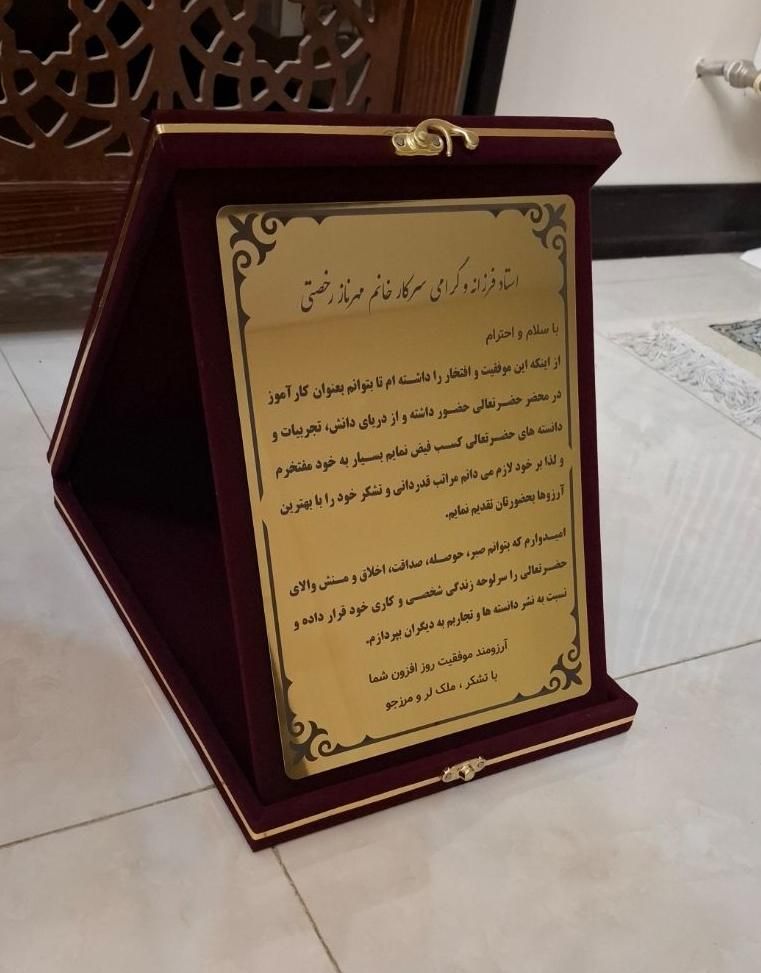 استاد فرزانه و گرامی سرکار خانم مهرناز رخصتی
با سلام و احترام
از اینکه این موفقیت و افتخار را داشته ام تا بتوانم بعنوان کارآموز
در محضر حضرتعالی حضور داشته و از دریای دانش، تجربیات و
دانسته های حضرتعالی کسب فیض نمایم بسیار به خود مفتخرم
و لذا بر خود لازم می دانم مراتب قدردانی و تشکر خود را با بهترین
آرزوها بحضورتان تقدیم نمایم.
امیدوارم که بتوانم صبر، حوصله، صداقت، اخلاق و منش والای
حضرتعالی را سرلوحه زندگی شخصی و کاری خود قرار داده و
نسبت به نشر دانسته ها و تجاربم به دیگران بپردازم.
آرزومند موفقیت روز افزون شما
با تشکر ، ملک لر و مرزجو